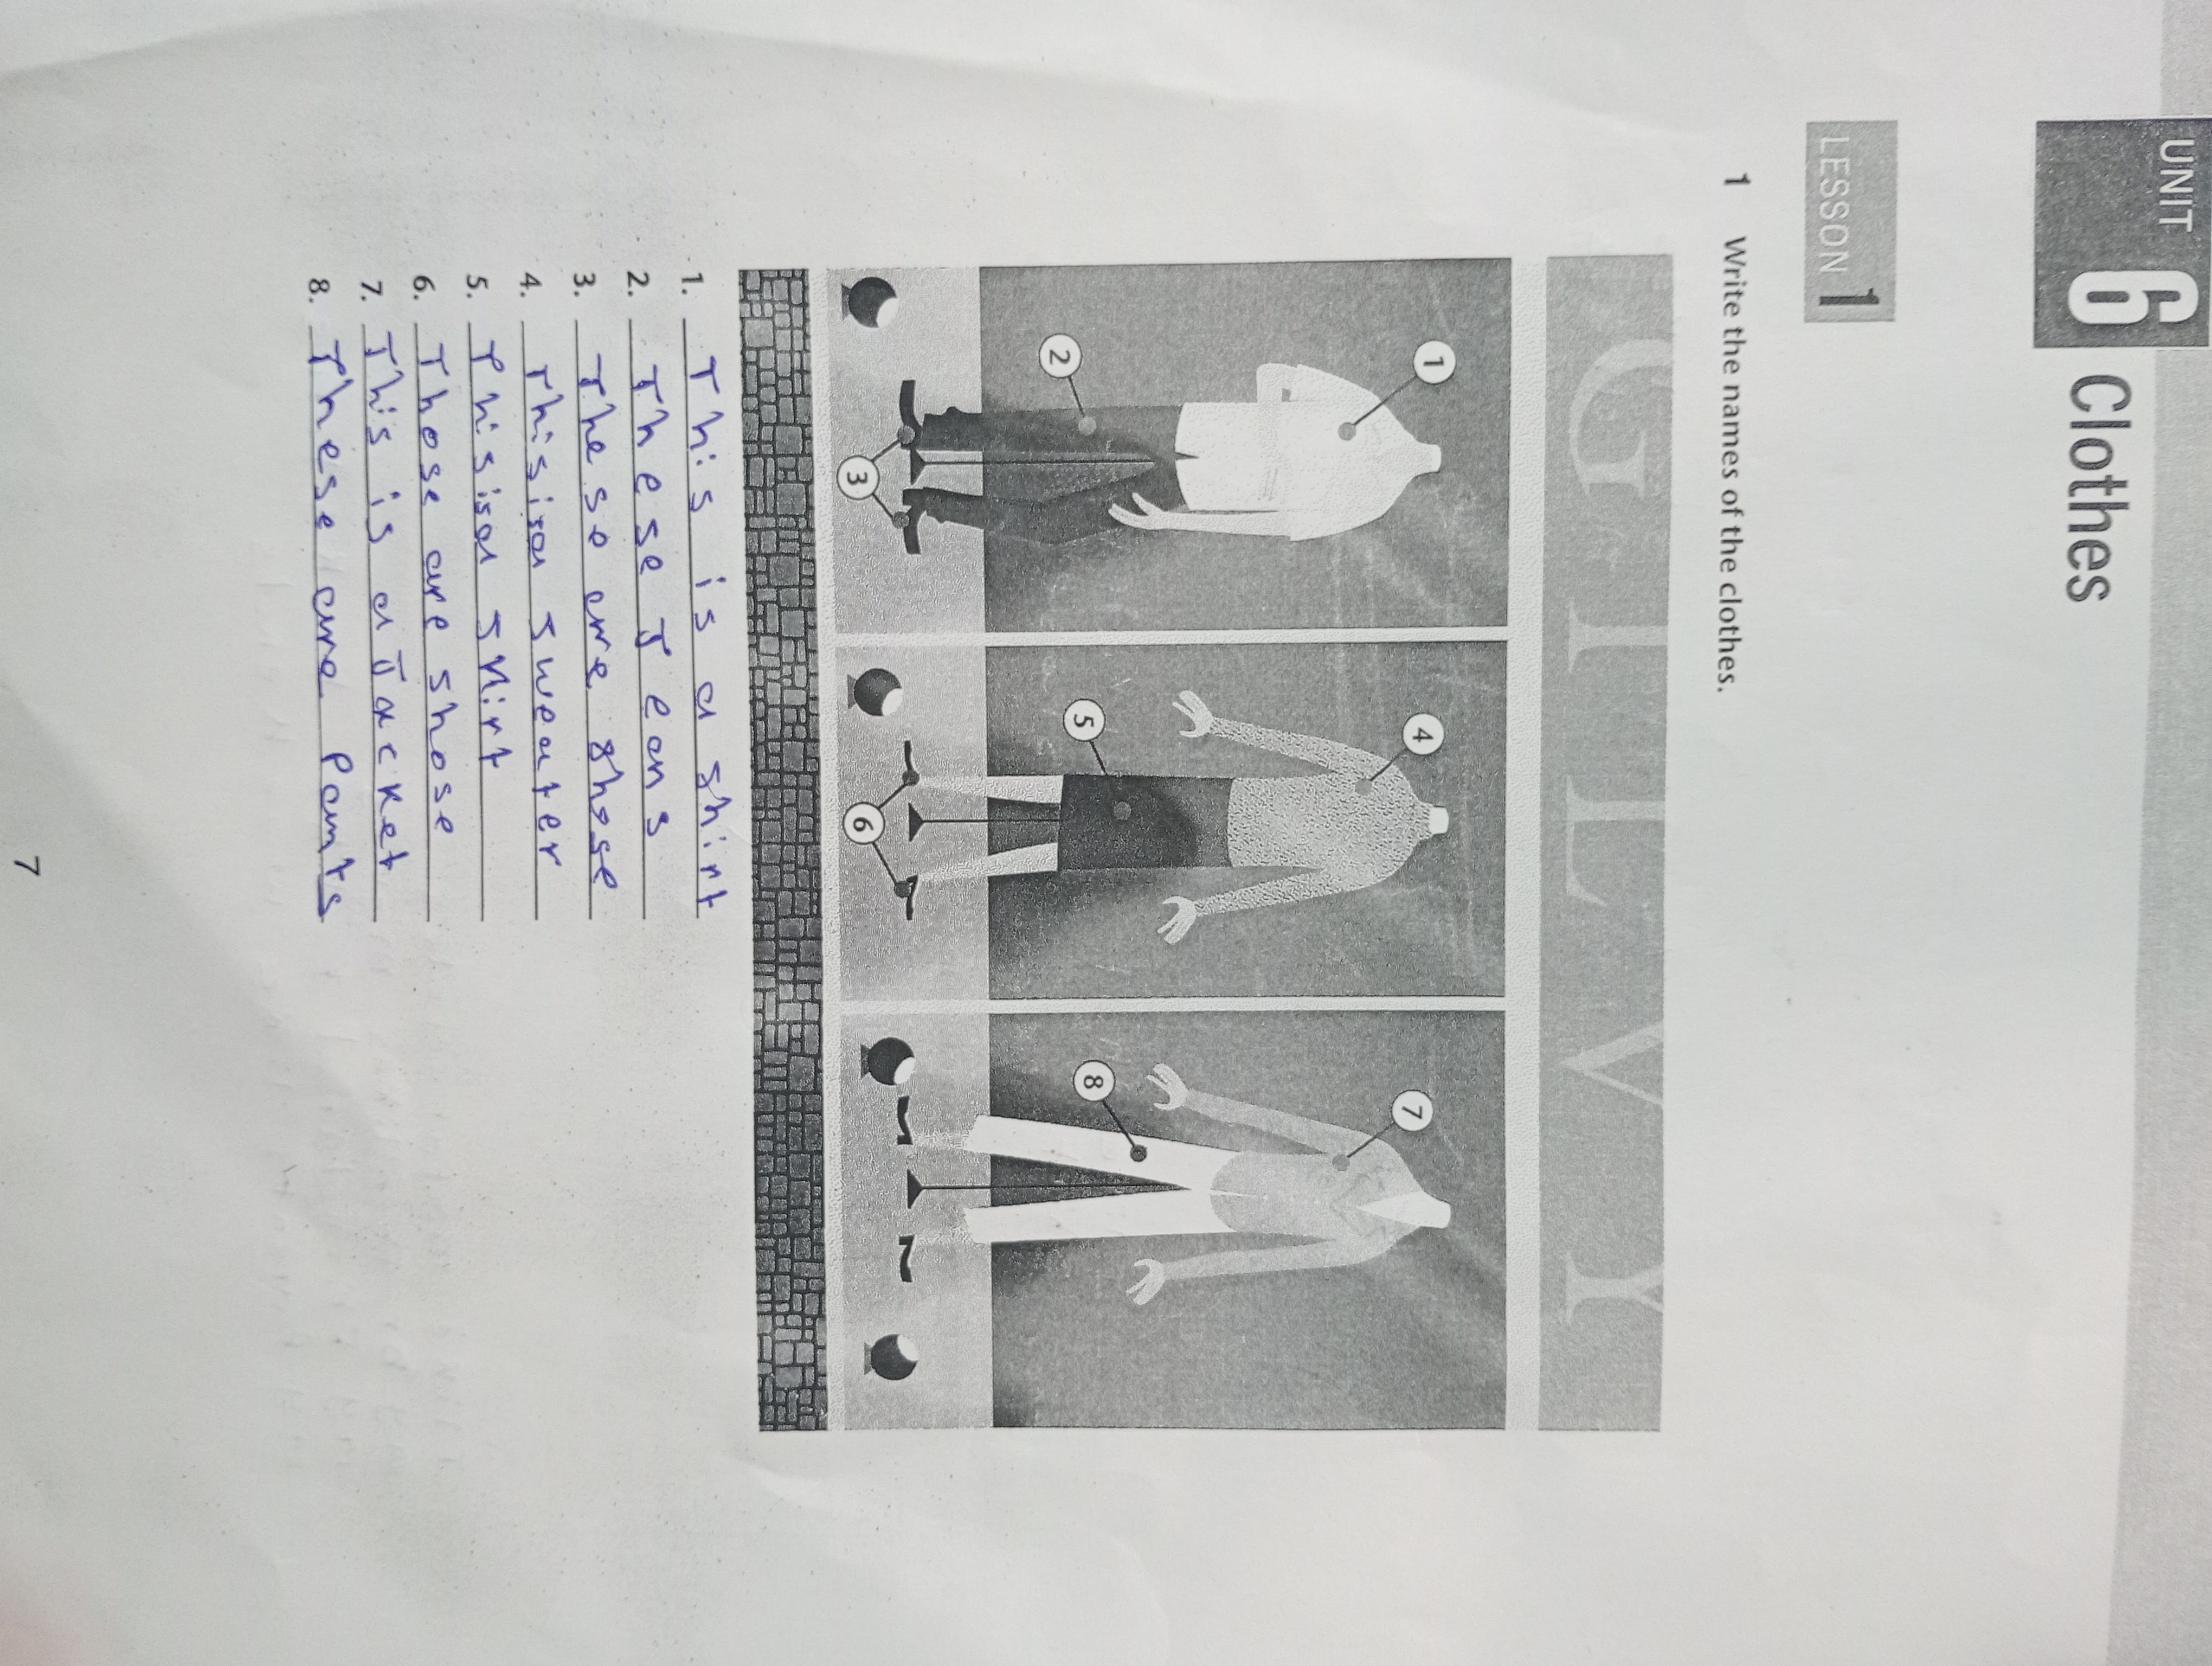 UNIT 6 Clothes
LESSON 1
1 Write the names of the clothes.
GILVY
1 4 7
2 5 8
3 6
1. This is a shirt
2. These Jeans
3. These are shose
4. This is a sweater
5. This is a skirt
6. Those are shose
7. This is a Jacket
8. These are Pants
7